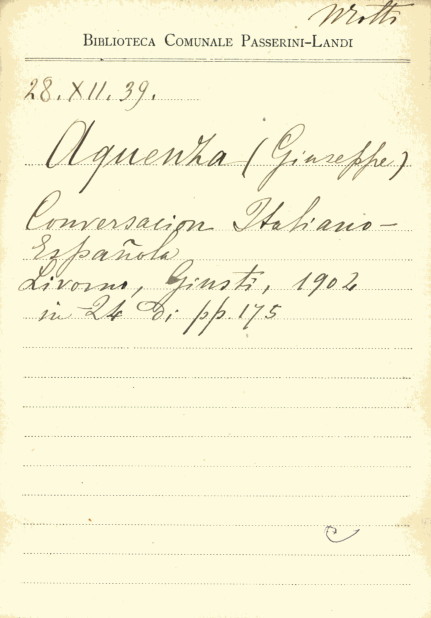 Motti
BIBLIOTECA COMUNALE PASSERINI-LANDI
28.XII.39.
Aquenza (Giuseppe)
Conversacion Italiano-
Española
Livorno, Giusti, 1902
in 24 di pp. 175